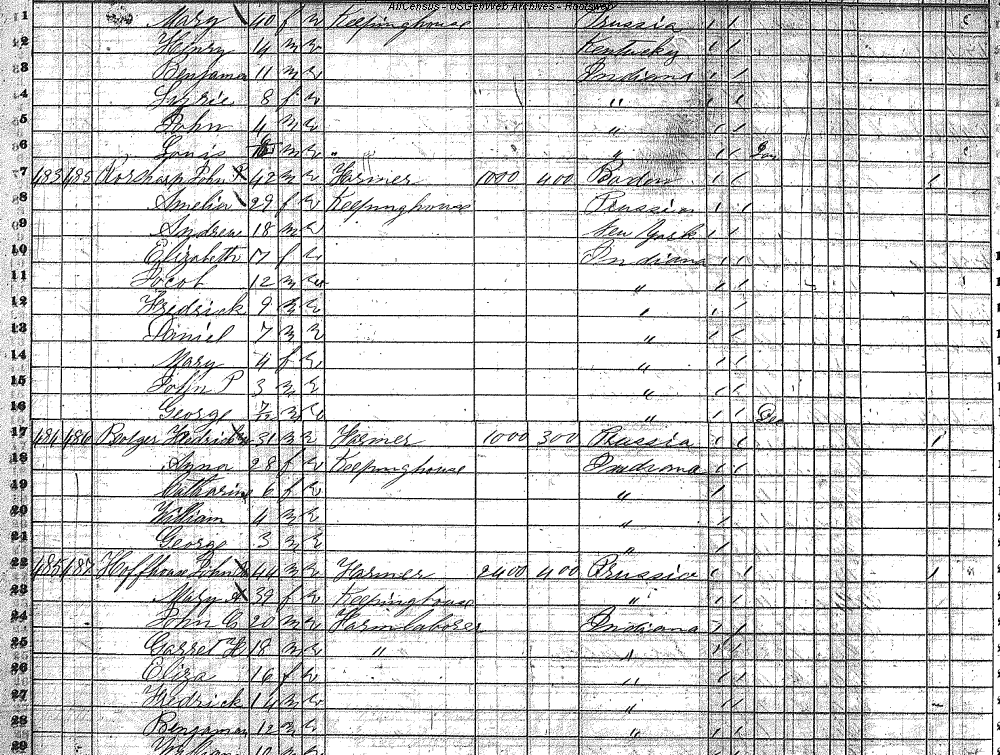 AllCensus - USGenWeb Archives - Rootsweb
1 Mary 40 f w Keepinghouse Prussia / /
2 Henry 14 m w Kentucky / /
3 Benjama 11 m w Indiana / /
4 8 f w " / /
5 John 4 m w " / /
6 Louis m w " " / / Jan
7 483 485 John 42 m w Farmer 1000 400 Baden / / /
8 Amelia 29 f w Keepinghouse Prussia / /
9 Andrew 18 m w New York / /
10 Elizabeth f w Indiana / /
11 Jocob 12 m w " / /
12 Fredrick 9 m w " / /
13 Daniel 7 m w " / /
14 Mary 4 f w " / /
15 John P 3 m w " / /
16 George m w " / /
17 484 486 Fredrick 31 m w Farmer 1000 300 Prussia / / /
18 Anna 28 f w Keepinghouse Indiana / /
19 Catharine 6 f w " /
20 William 4 m w " /
21 George 3 m w " /
22 485 487 Hoffhouse John 44 m w Farmer 2400 400 Prussia / / /
23 Mary A 39 f w Keepinghouse " / /
24 John C 20 m w Farmlaborer Indiana / /
25 Garret H 18 m w " " / /
26 Eliza 16 f w " / /
27 Fredrick 14 m w " / /
28 Benjaman 12 m w " / /
29 William 10 m w